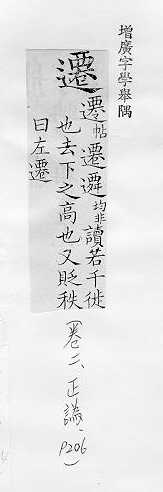 增廣字學舉隅
遷 遷帖遷遷均非讀若千徙
也去下之高也又貶秩
曰左遷
(卷二、正譌、P206)